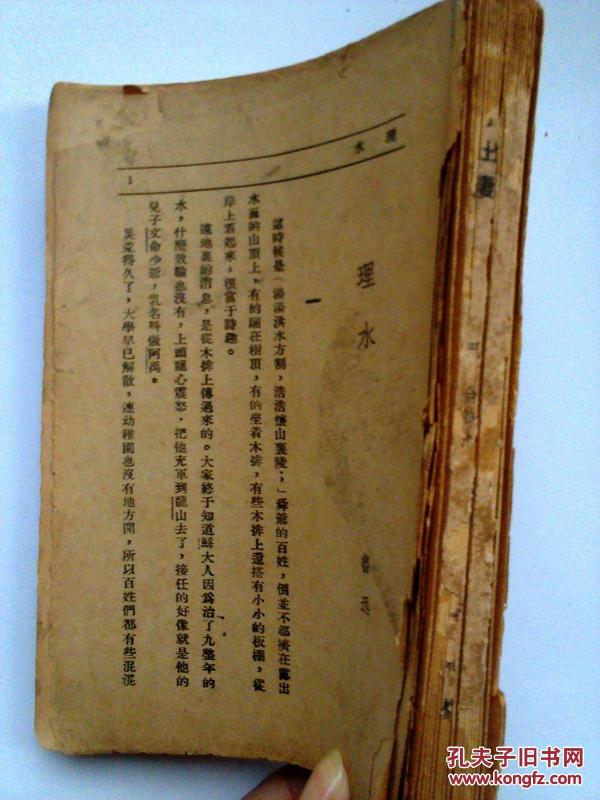 理水
1
理水
魯迅
一
這時候是「湯湯洪水方割，浩浩懷山襄陵；」舜爺的百姓，倒並不都擠在露出
水面的山頂上，有的捆在樹頂，有的坐着木排，有些木排上還搭有小小的板棚，從
岸上看起來，很富于詩趣。
遠地裏的消息，是從木排上傳過來的。大家終于知道鯀大人因爲治了九整年的
水，什麼效驗也沒有，上頭龍心震怒，把他充軍到龍山去了，接任的好像就是他的
兒子文命少爺，乳名叫做阿禹。
災荒得久了，大學早已解散，連幼稚園也沒有地方開，所以百姓們都有些混混
孔夫子旧书网
www.kongfz.com